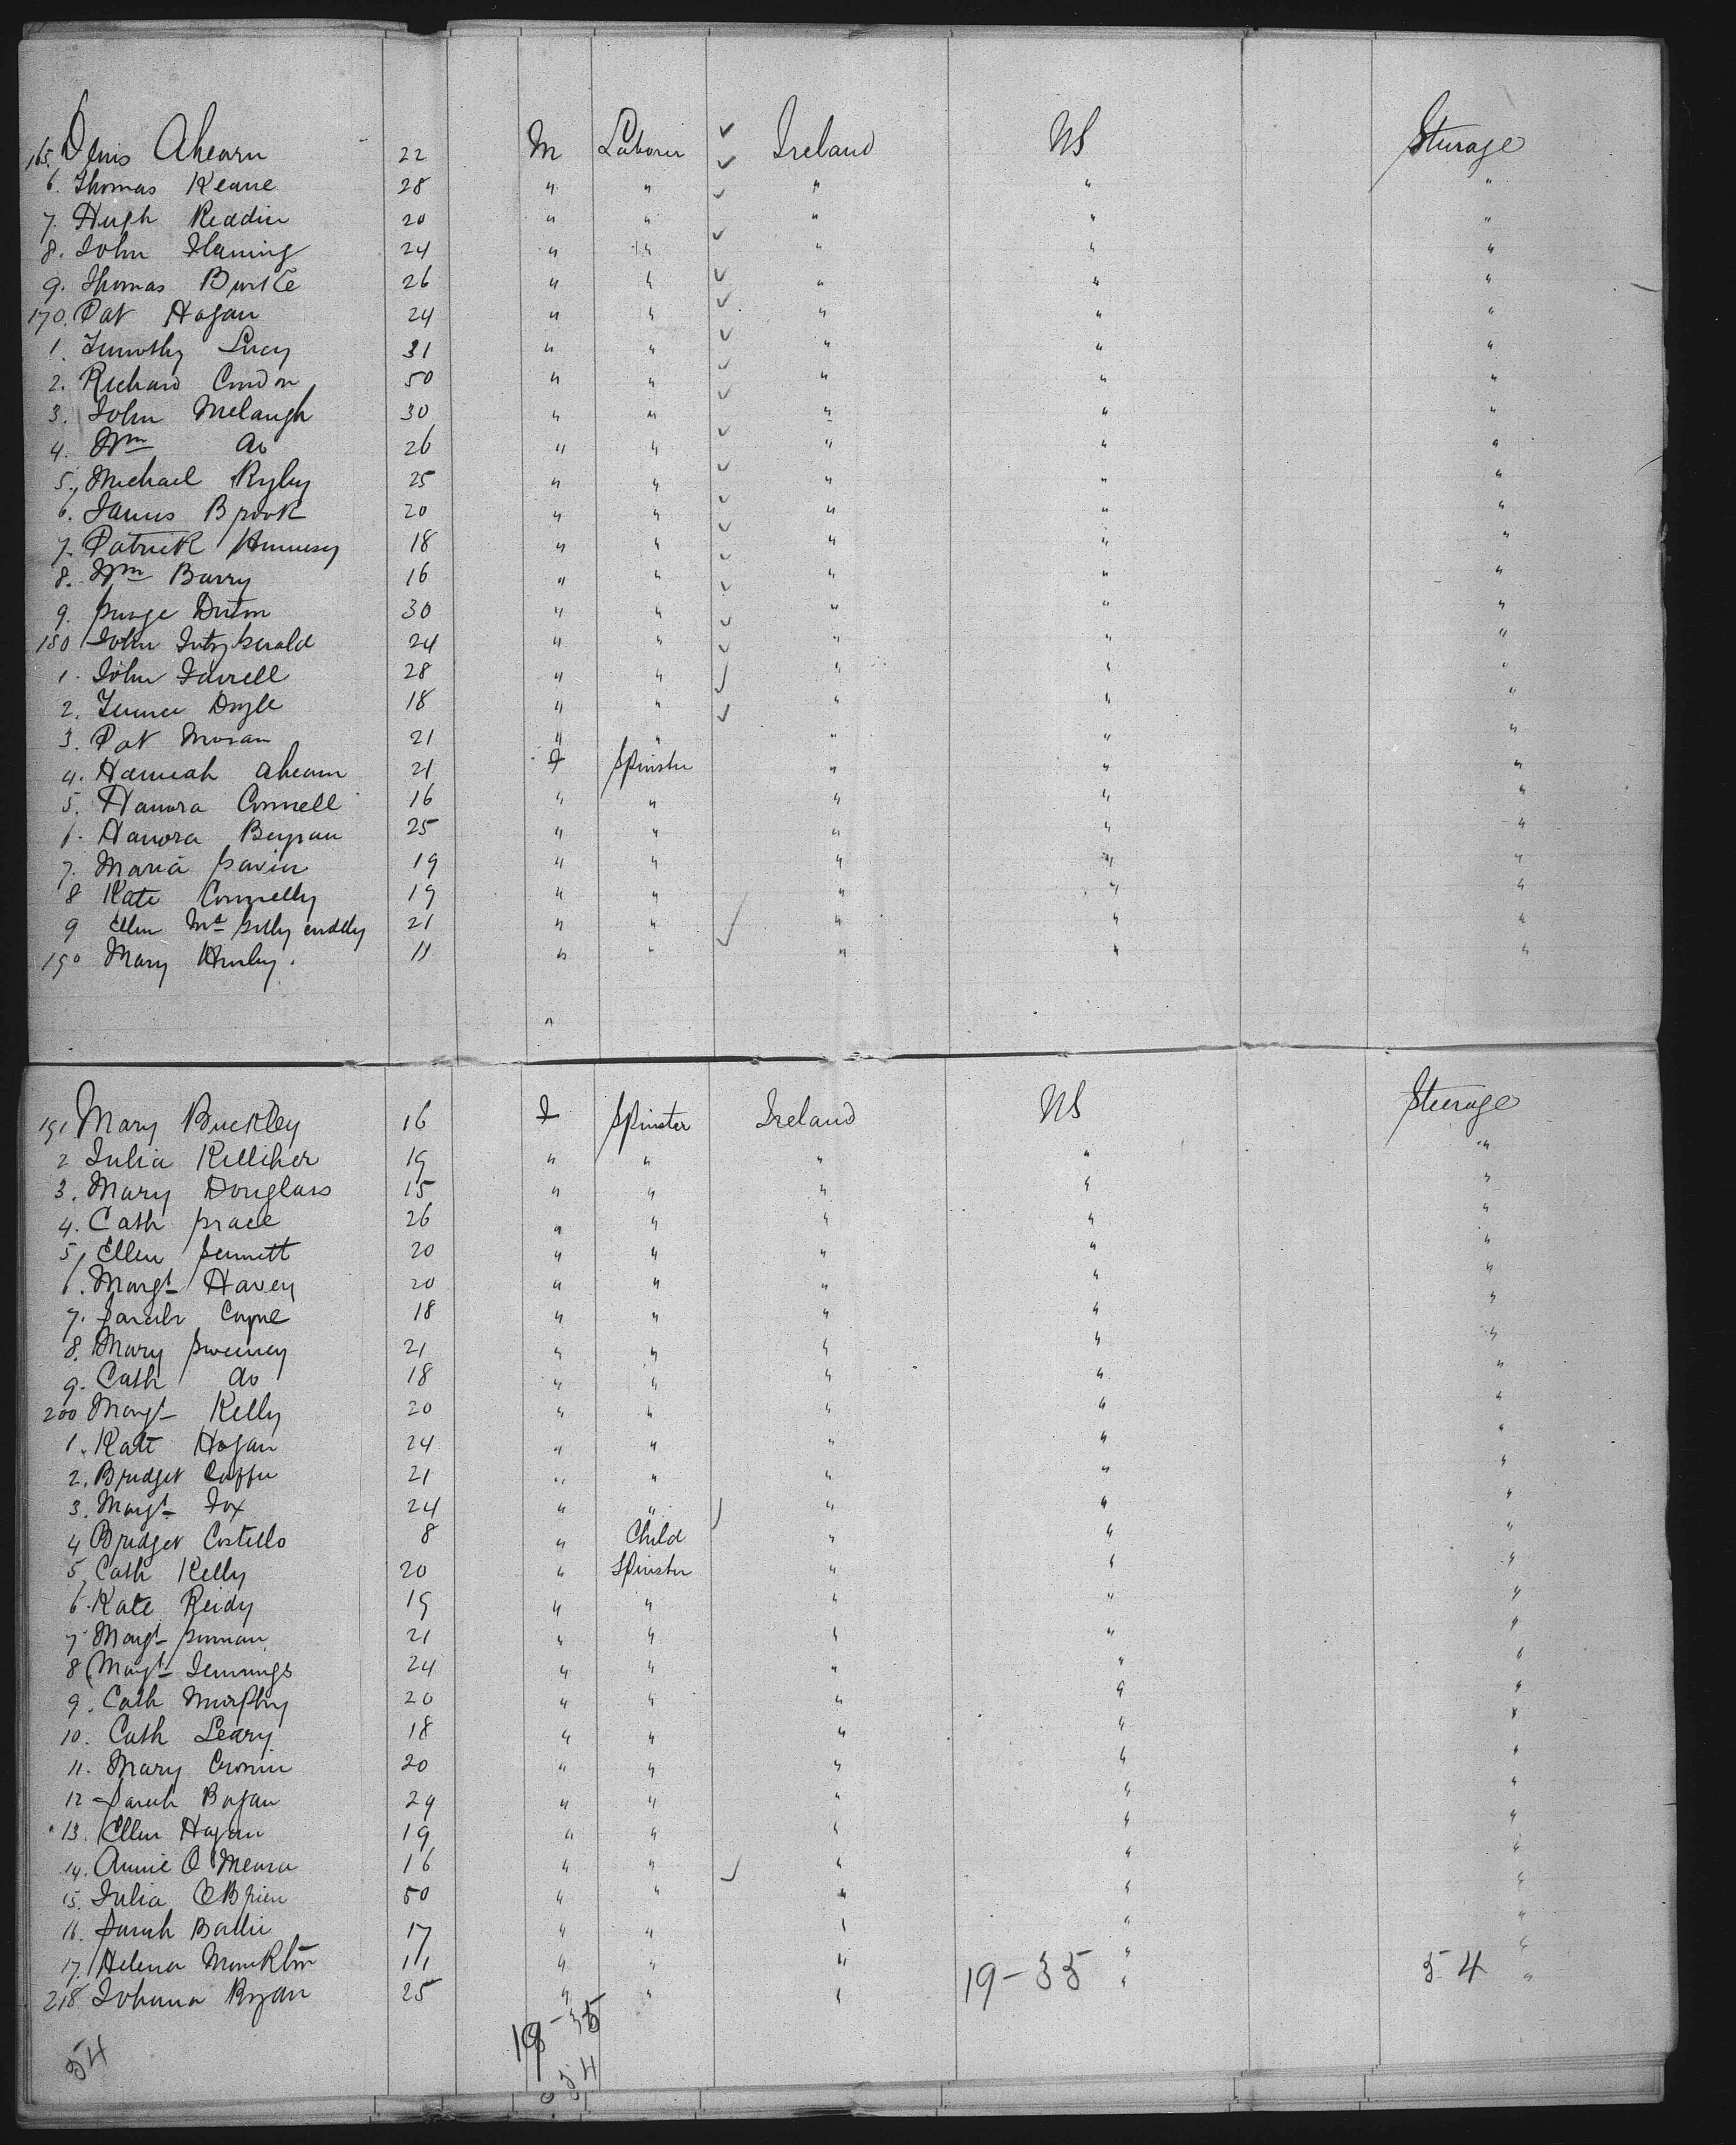 165. Denis Ahearn 22 M Laborer ✓ Ireland US Steerage
6. Thomas Keane 28 " " ✓ " " "
7. Hugh Reddin 20 " " ✓ " " "
8. John Flaming 24 " " ✓ " " "
9. Thomas Burke 26 " " ✓ " " "
170. Pat Hogan 24 " " ✓ " " "
1. Timothy Lucy 31 " " ✓ " " "
2. Richard Condon 50 " " ✓ " " "
3. John 30 " " ✓ " " "
4. Wm do 26 " " ✓ " " "
5. Michael 25 " " ✓ " " "
6. James Brook 20 " " ✓ " " "
7. Patrick Hennesy 18 " " ✓ " " "
8. Wm Barry 16 " " ✓ " " "
9. 30 " " ✓ " " "
180 John Fitzgerald 24 " " ✓ " " "
1. John Farrell 28 " " ✓ " " "
2. Doyle 18 " " ✓ " " "
3. Pat Moran 21 " " " " "
4. Hannah Ahearn 21 F Spinster " " "
5. Hanora Connell 16 " " " " "
6. Hanora 25 " " " " "
7. Maria Gavin 19 " " " " "
8 Kate Connelly 19 " " " " "
9 Ellen 21 " " ✓ " " "
190 Mary 11 " " " " "
"
191 Mary Buckley 16 F Spinster Ireland US Steerage
2 Julia Kelliher 19 " " " " "
3. Mary Douglass 15 " " " " "
4. Cath Grace 26 " " " " "
5. Ellen 20 " " " " "
6. Margt Harvey 20 " " " " "
7. Sarah Coyne 18 " " " " "
8. Mary Sweeney 21 " " " " "
9. Cath do 18 " " " " "
200 Margt Kelly 20 " " " " "
1. Kate Hogan 24 " " " " "
2. Bridget 21 " " " " "
3. Margt Fox 24 " " ✓ " " "
4 Bridget Costello 8 " Child " " "
5. Cath Kelly 20 " Spinster " " "
6. Kate Reidy 19 " " " " "
7 Margt 21 " " " " "
8 Margt Jennings 24 " " " " "
9. Cath Murphy 20 " " " " "
10. Cath Leary 18 " " " " "
11. Mary Cronin 20 " " " " "
12 Sarah 29 " " " " "
13. Ellen Hogan 19 " " " " "
14. Annie O'Meara 16 " " ✓ " " "
15. Julia O'Brien 50 " " " " "
16. Sarah 17 " " " " "
17. Helena Monkton 11 " " " " "
218 Johana Ryan 25 " " " " "
19-35 54
19-35
54
54